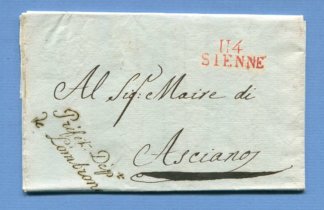 114
SIENNE
Al Sig.r Maire di
Asciano
Préfet Dépt
de L'ombrone